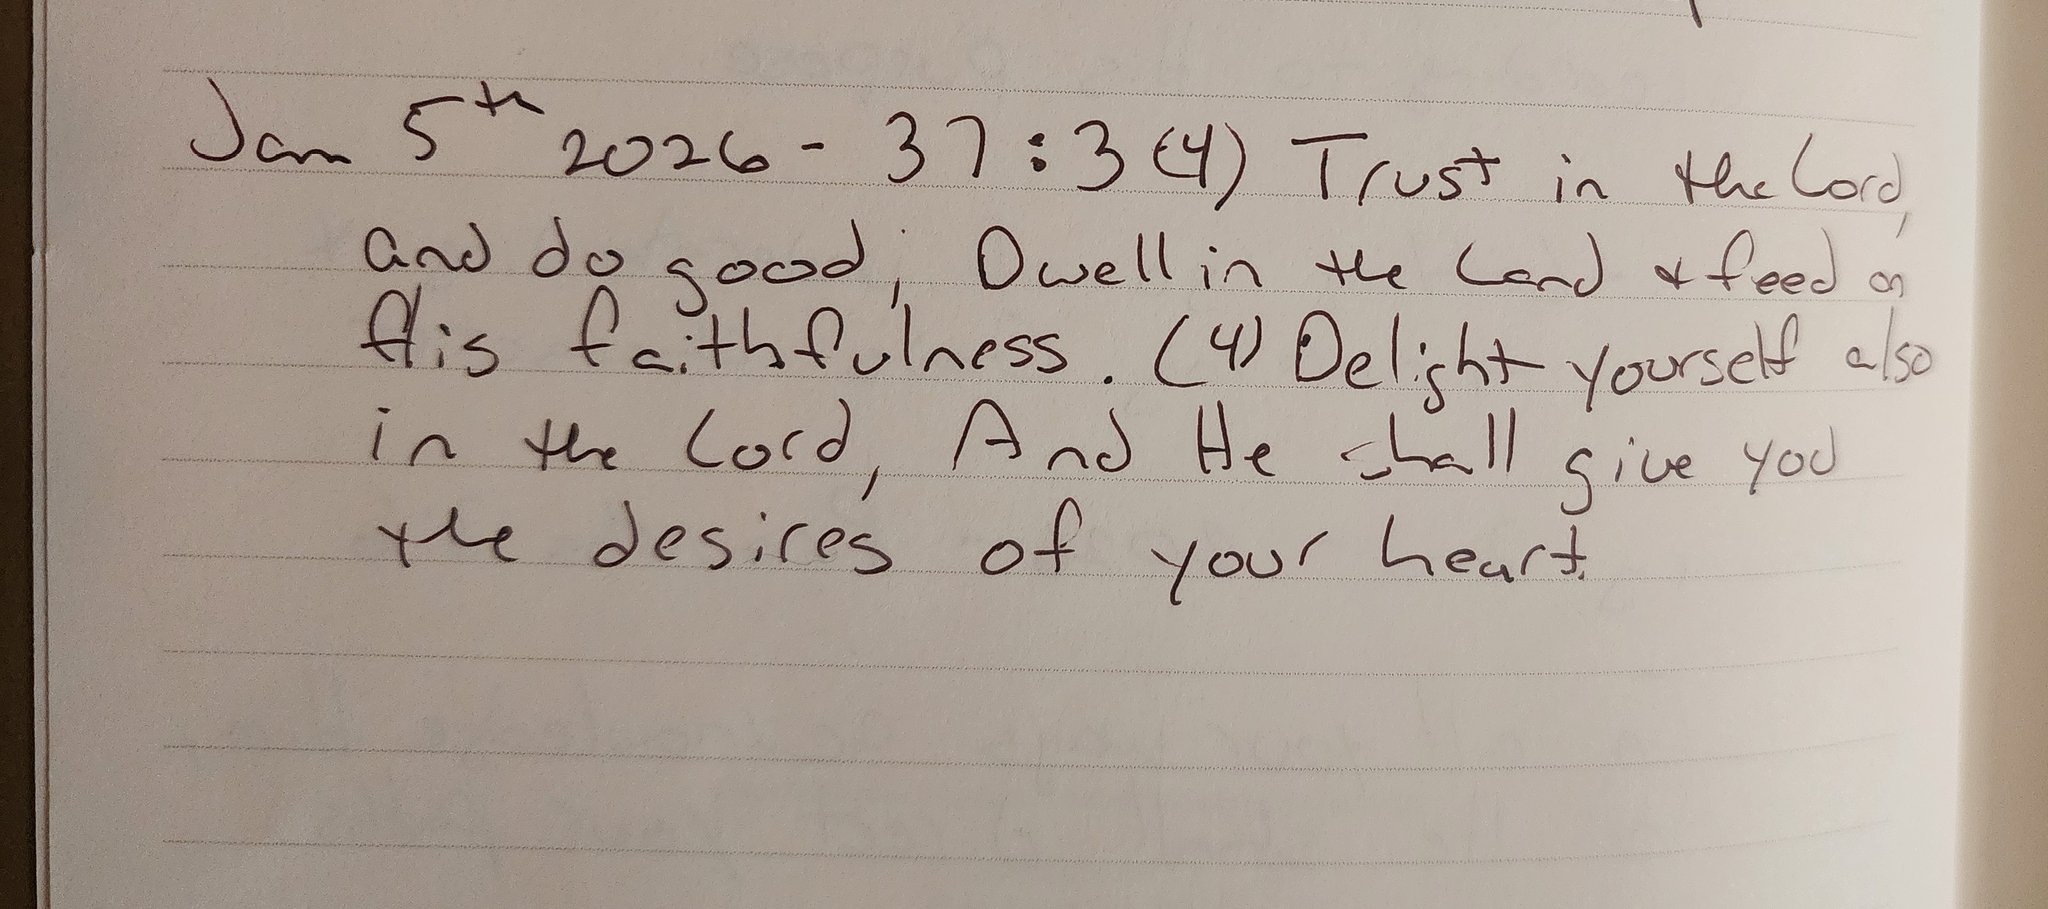 Jan 5th 2026 - 37:3(4) Trust in the Lord,
and do good; Dwell in the Land & feed on
His faithfulness. (4) Delight yourself also
in the Lord, And He shall give you
the desires of your heart.